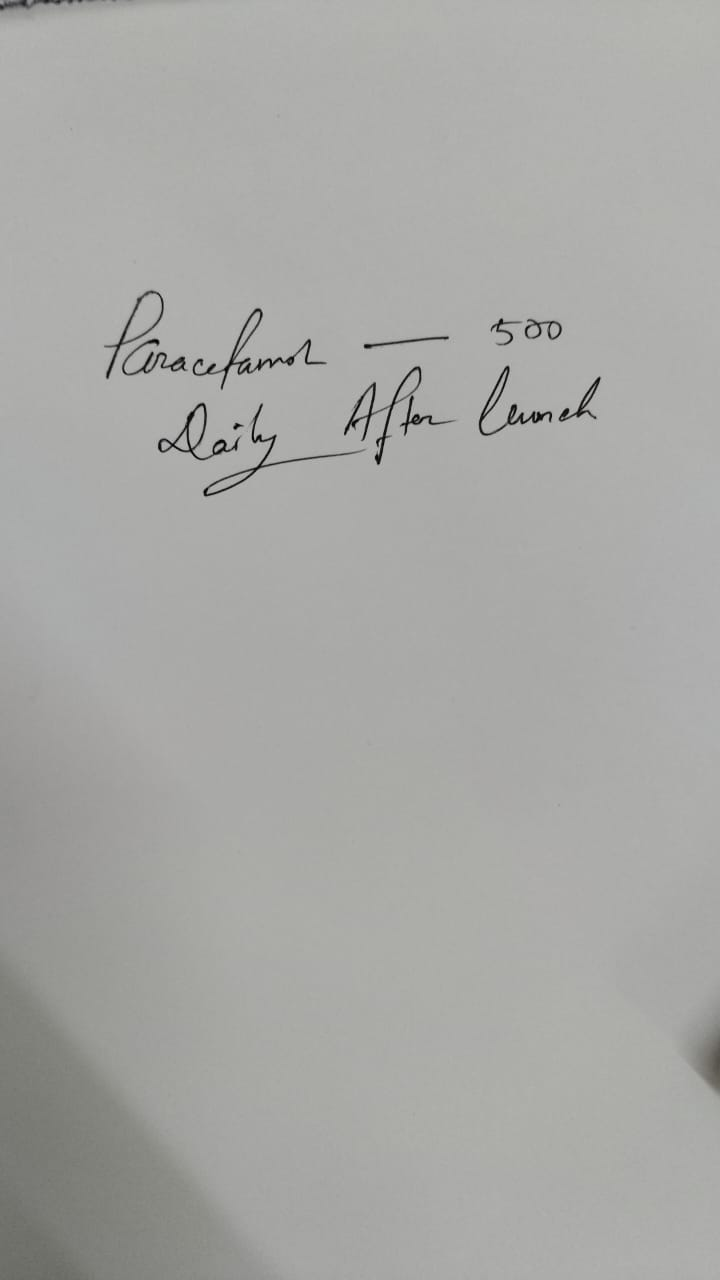 Paracetamol — 500
Daily After lunch